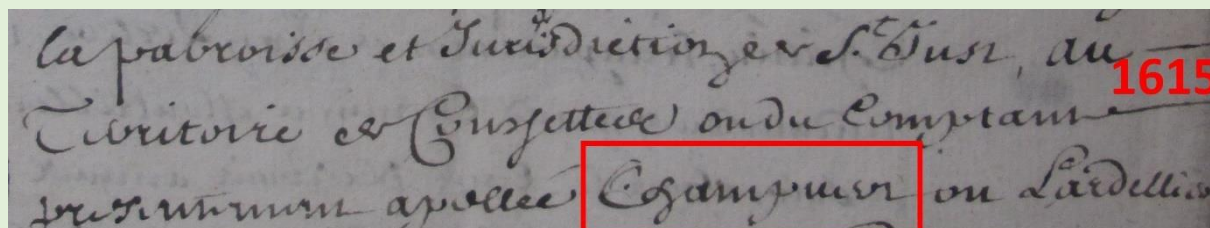 la parroisse et Jurisdiction de St Just, au
1615
Territoire de ou du Comptant
presentement apellée Champuier ou Lardellier